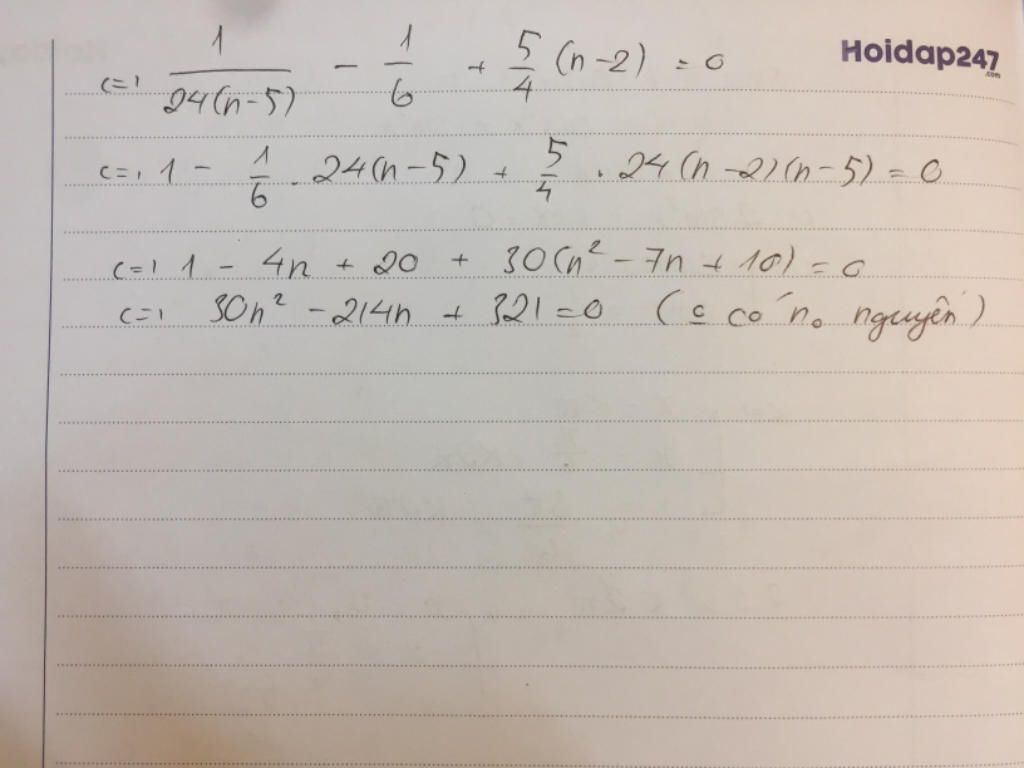 Hoidap247.com
<=> 1/(24(n-5)) - 1/6 + 5/4 (n-2) = 0
<=> 1 - 1/6 . 24(n-5) + 5/4 . 24(n-2)(n-5) = 0
<=> 1 - 4n + 20 + 30(n² - 7n + 10) = 0
<=> 30n² - 214n + 321 = 0 (c̲ có n₀ nguyên)